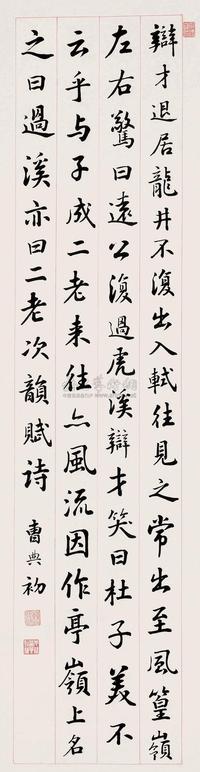 辯才退居龍井不復出入軾往見之常出至風篁嶺
左右驚曰遠公復過虎溪辯才笑曰杜子美不
云乎与子成二老来往亦風流因作亭嶺上名
之曰過溪亦曰二老次韻賦诗
曹典初